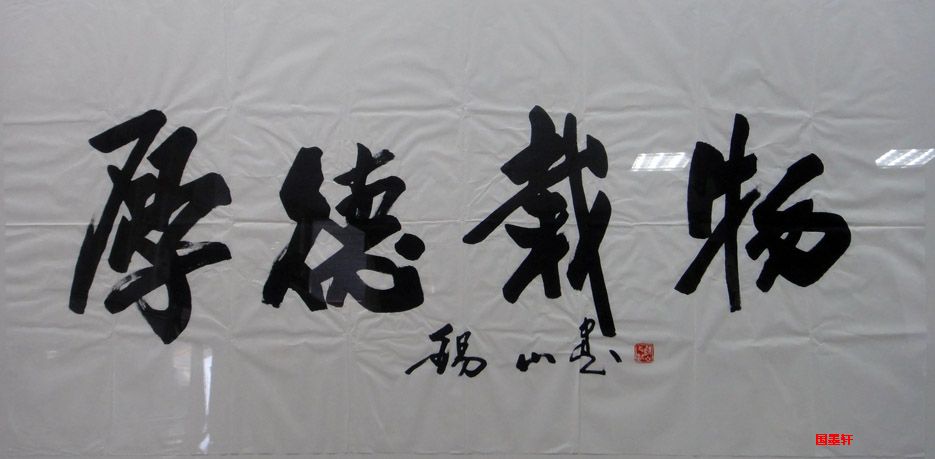 厚德载物
锡山书
国墨轩